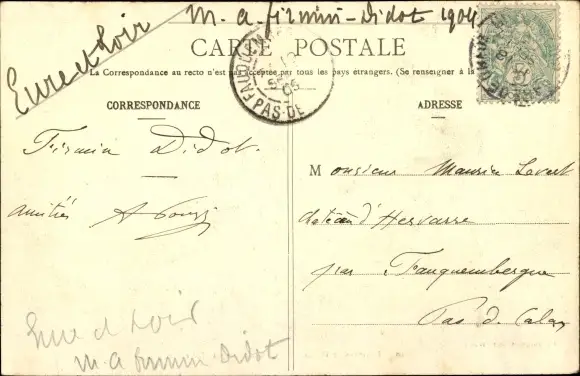 Eure et Loir
M. a. firmin-Didot 1904
CARTE POSTALE
La Correspondance au recto n'est pas acceptée par tous les pays étrangers. (Se renseigner à la
FAUQU
PAS-DE
CORRESPONDANCE
ADRESSE
Firmin Didot.
amitiés
Monsieur Maurice
château d'Hervarre
par Fauquembergue
Pas d. Calais
Eure et Loir
M. a firmin-Didot